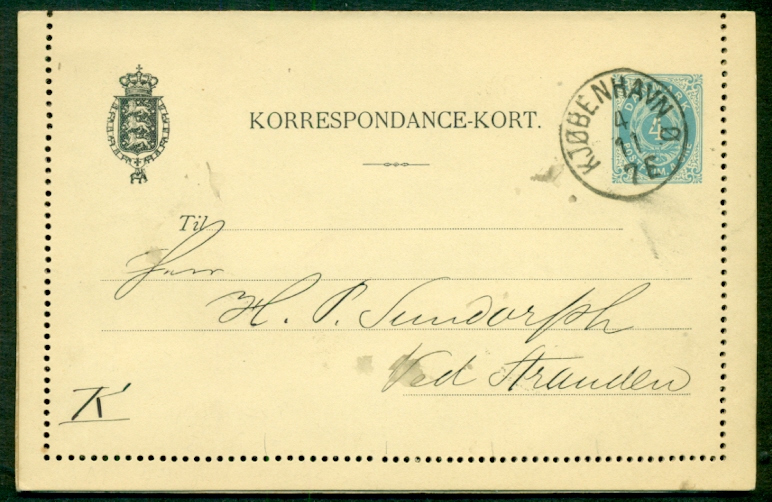 KORRESPONDANCE-KORT.
KJØBENHAVN Ø
4
11
7 E
4
Til
Herr
H. P. Sundorph
Ved Stranden
K